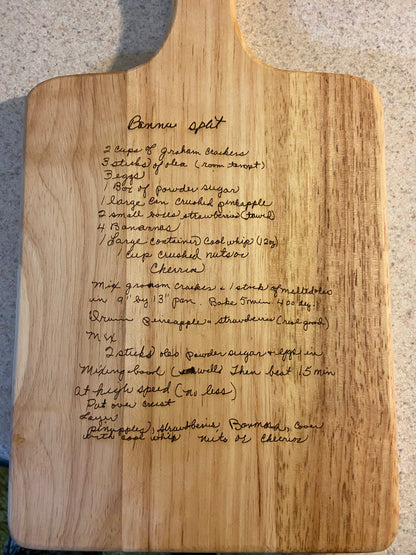 Bannu split
2 cups of graham crackers
3 sticks of olea (room tempt)
3 eggs
1 Box of powder sugar
1 large can crushed pineapple
2 small boxes strawberries (tawd)
4 Bananas
1 Large container Cool whip (12oz)
1 cup crushed nuts or
Cherries
Mix graham cracker + 1 stick of melted oleo
in 9" by 13" pan. Bake 5 min. 400 deg.
Drain pineapple + strawberries (real good)
Mix
2 sticks oleo powder sugar + eggs in
Mixing bowl (well) Then beat 15 min
at high speed (no less)
Put over crust
Layer
pineapples, strawberries, Bananas, Cover
with cool whip nuts or cherries